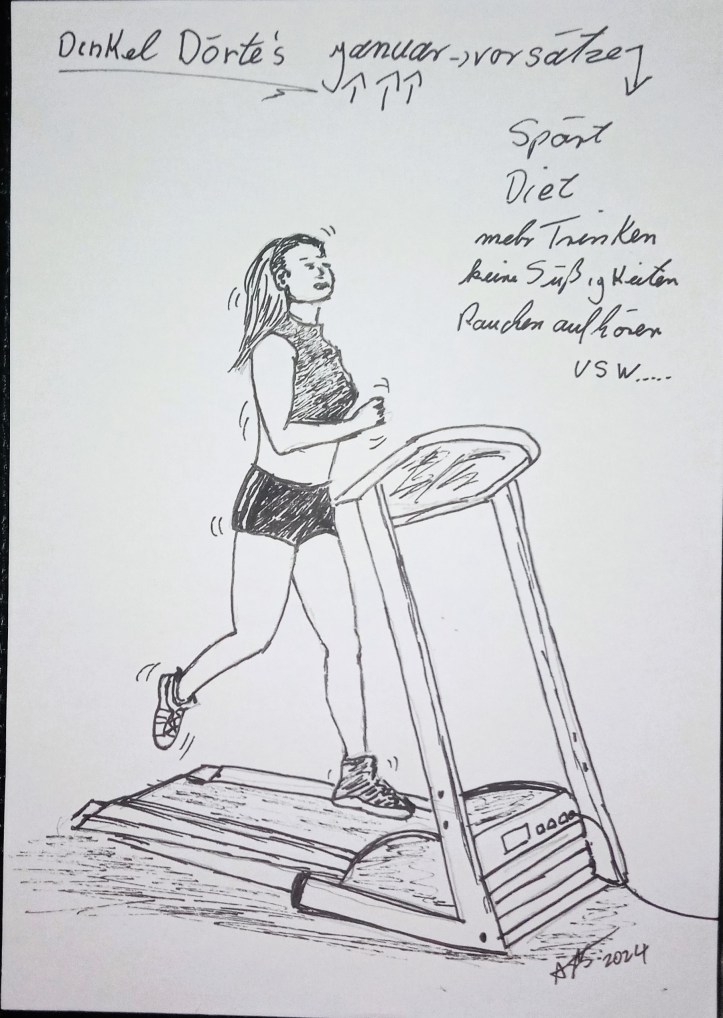 Dinkel Dörte's Januar-vorsätze
Sport
Diet
mehr Trinken
keine Süßigkeiten
Rauchen aufhören
USW.....
2024